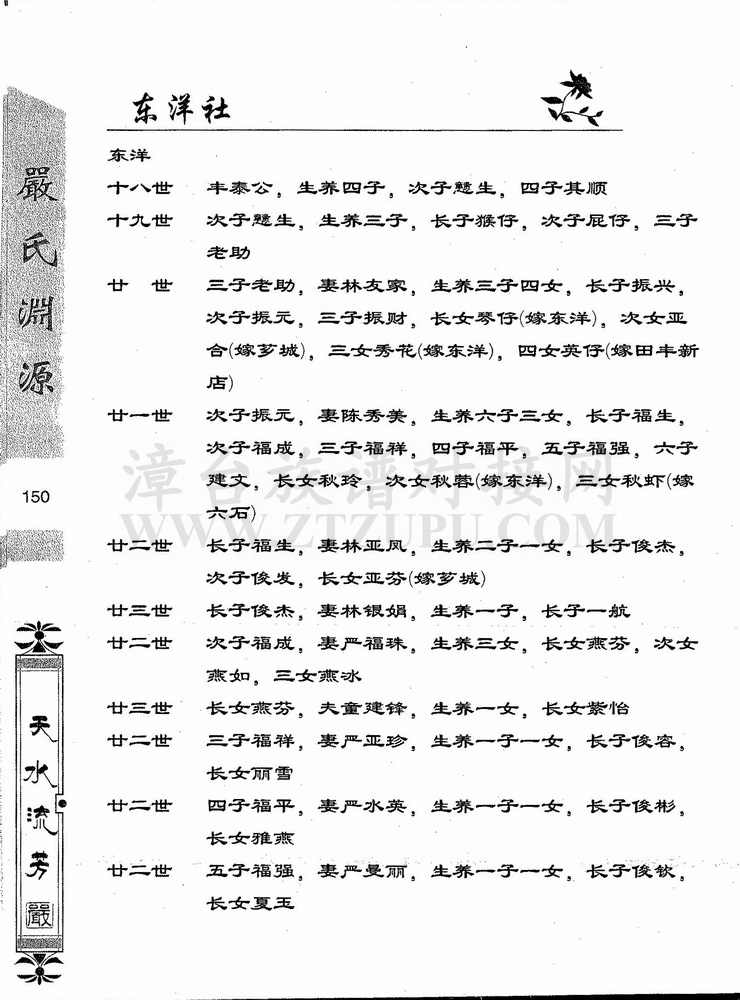 东洋社
嚴氏淵源
150
天水流芳
嚴
东洋
十八世 丰泰公，生养四子，次子魕生，四子其顺
十九世 次子魕生，生养三子，长子猴仔，次子屁仔，三子
老助
廿 世 三子老助，妻林友家，生养三子四女，长子振兴，
次子振元，三子振财，长女琴仔(嫁东洋)，次女亚
合(嫁芗城)，三女秀花(嫁东洋)，四女英仔(嫁田丰新
店)
廿一世 次子振元，妻陈秀美，生养六子三女，长子福生，
次子福成，三子福祥，四子福平，五子福强，六子
建文，长女秋玲，次女秋蓉(嫁东洋)，三女秋虾(嫁
六石)
廿二世 长子福生，妻林亚凤，生养二子一女，长子俊杰，
次子俊发，长女亚芬(嫁芗城)
廿三世 长子俊杰，妻林银娟，生养一子，长子一航
廿二世 次子福成，妻严福珠，生养三女，长女燕芬，次女
燕如，三女燕冰
廿三世 长女燕芬，夫童建锋，生养一女，长女紫怡
廿二世 三子福祥，妻严亚珍，生养一子一女，长子俊容，
长女丽雪
廿二世 四子福平，妻严水英，生养一子一女，长子俊彬，
长女雅燕
廿二世 五子福强，妻严曼丽，生养一子一女，长子俊钦，
长女夏玉
漳台族谱对接网
WWW.ZTZUPU.COM